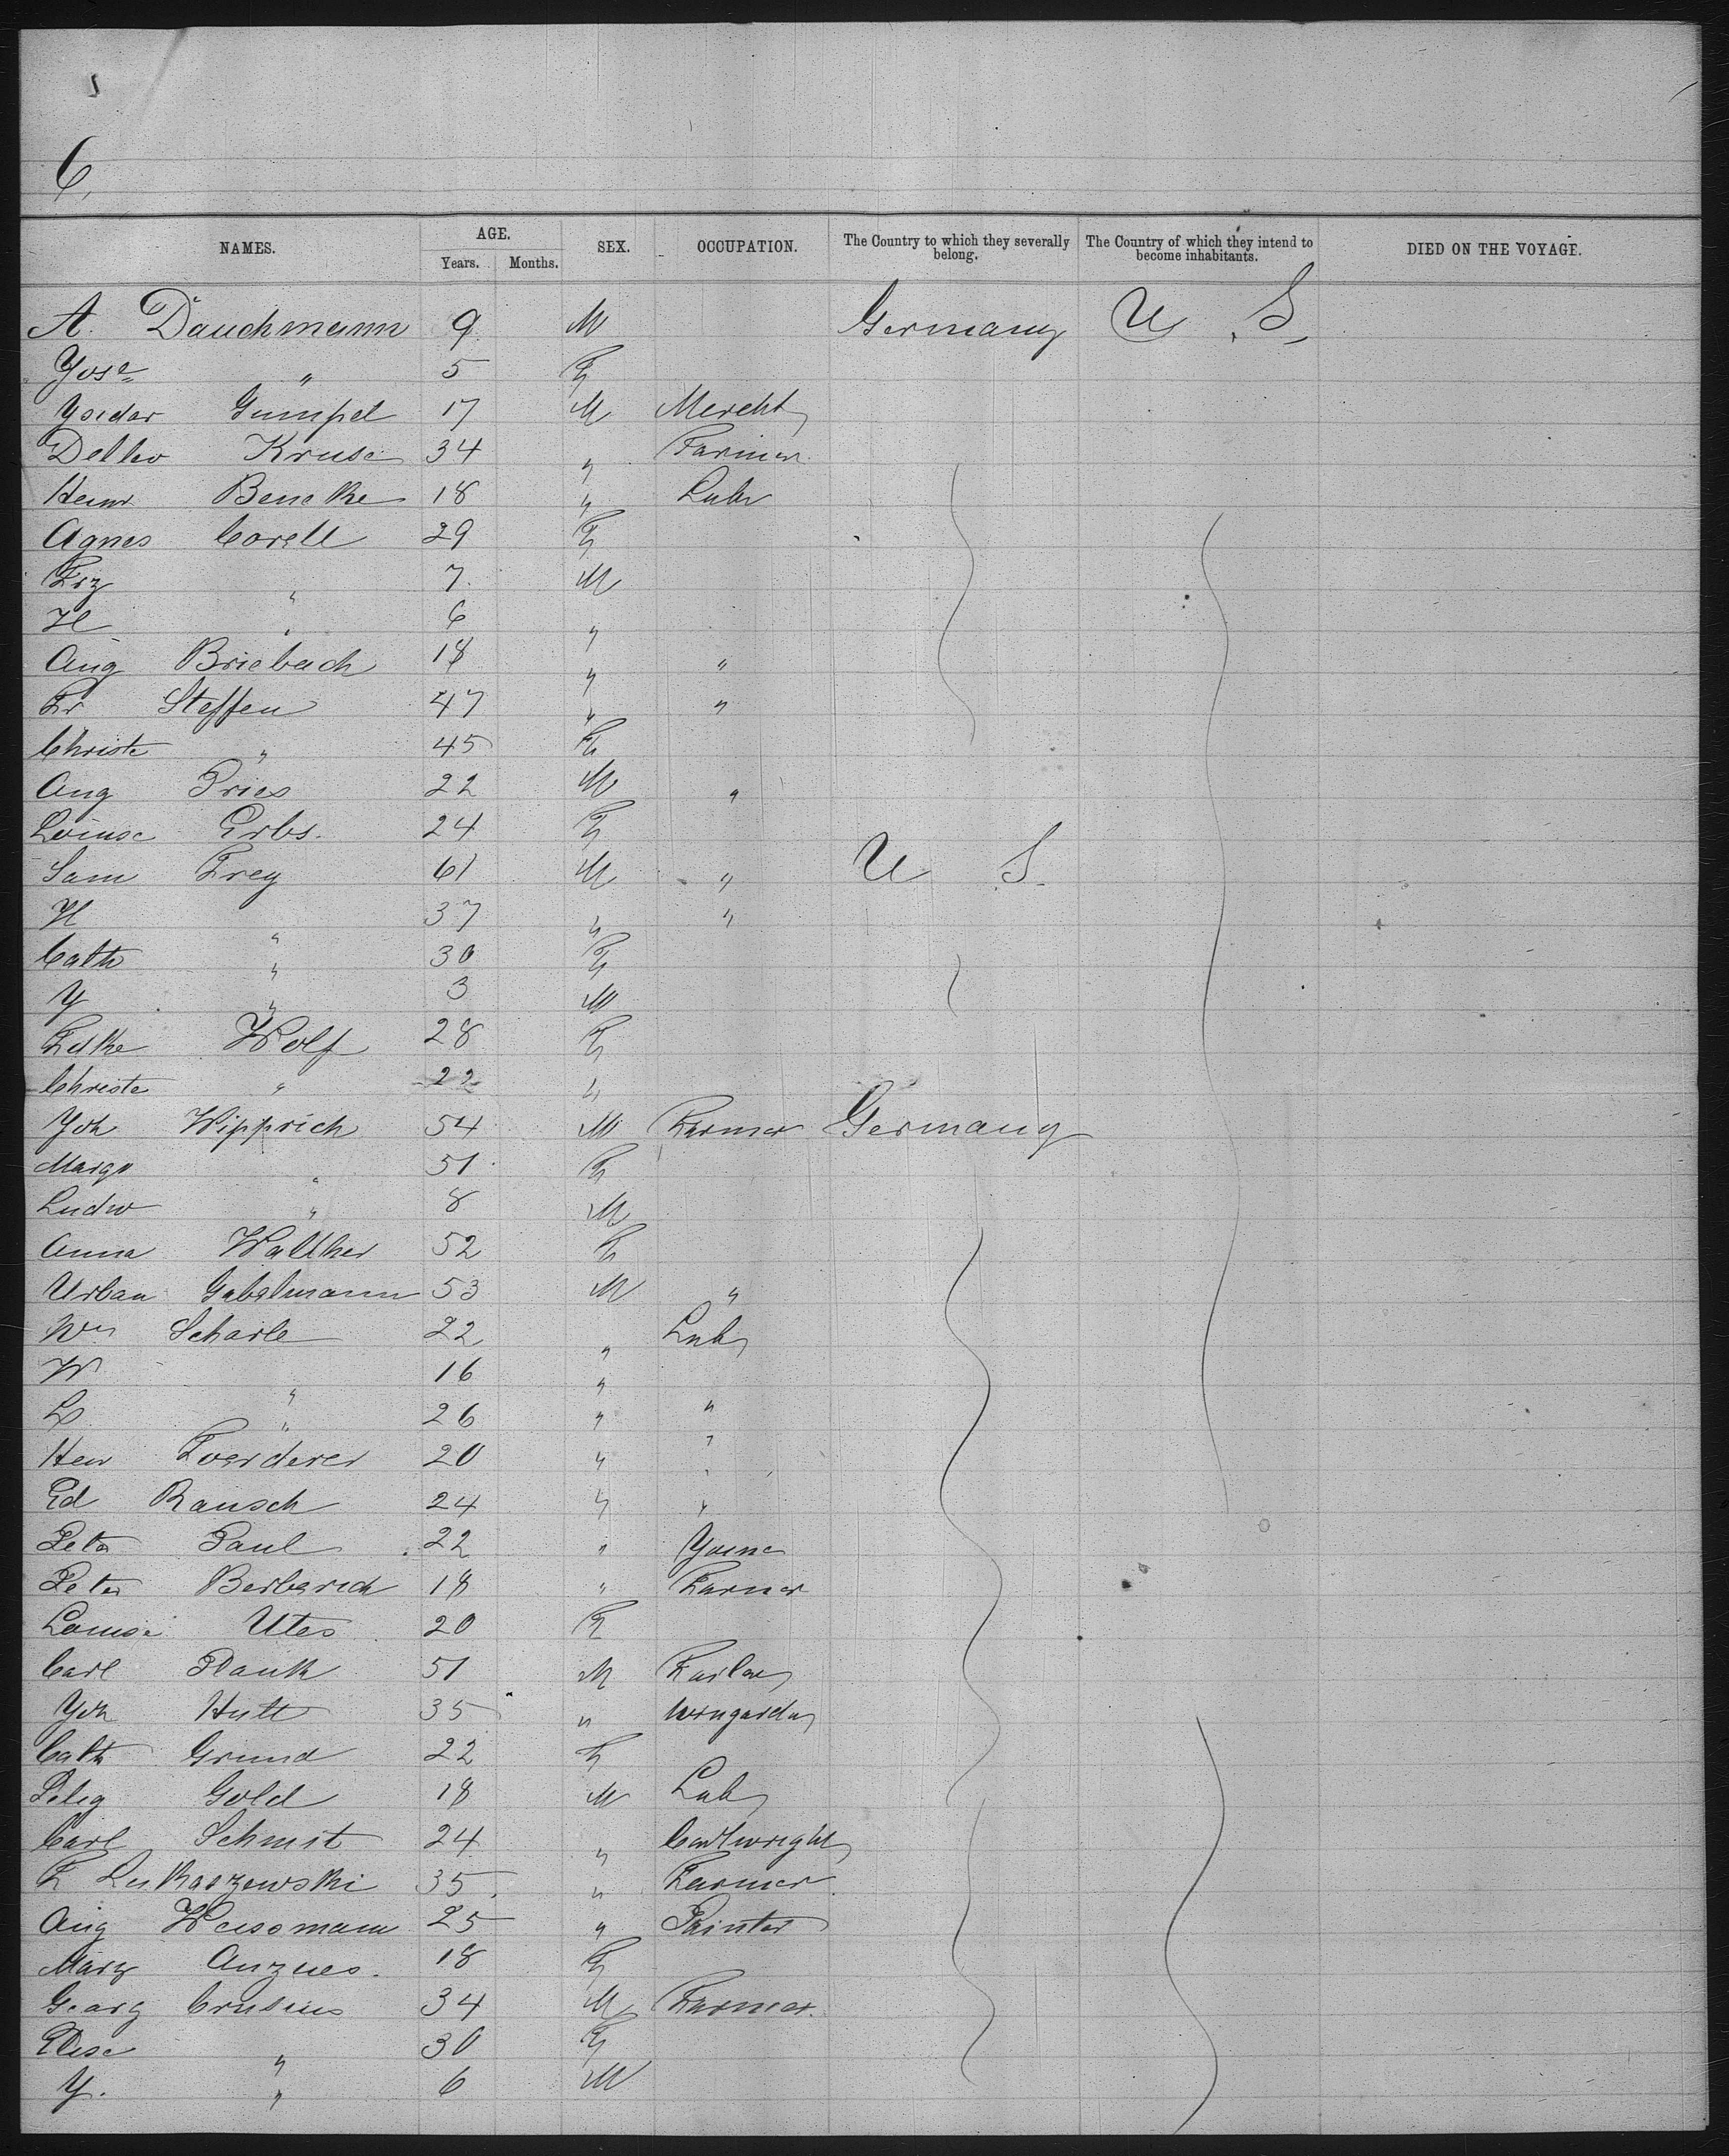 6
NAMES. AGE. SEX. OCCUPATION. The Country to which they severally belong. The Country of which they intend to become inhabitants. DIED ON THE VOYAGE.
Years. Months.
A. Dauchmann 9 M Germany U. S.
Jose " 5 F
Ysidor Gumpel 17 M Mercht
Detlev Kruse 34 " Farmer
Heinr Benecke 18 " Labr
Agnes Corell 29 F
Frz " 7 M
H " 6 "
Aug Briebach 18 " "
Fr Steffen 47 " "
Christe " 45 F
Aug Pries 22 M "
Louise Erbs. 24 F
Sam Frey 61 M " U S.
H " 37 " "
Cath " 30 F
Y " 3 M
Wolf 28 F
Christe " 22 "
Joh Wipprich 54 M Farmer Germany
Marga " 51 F
Ludw " 8 M
Anna Walther 52 F
Urban Gabelmann 53 M "
Wm Scharle 22 " Lab
W " 16 "
L " 26 " "
Hen Foerderer 20 " "
Ed Rausch 24 " "
Peter Paul 22 " 
Peter Berberich 18 " Farmer
Louise Utes 20 F
Carl Plank 51 M
Joh Hutt 35 "
Cath Grund 22 F
Gold 18 M Lab
Carl Schmit 24 " Cartwright
F Lukaszewski 35 " Farmer
Aug Weissmann 25 " Painter
Mary 18 F
Georg Crusius 34 M Farmer.
Elise " 30 F
Y. " 6 M